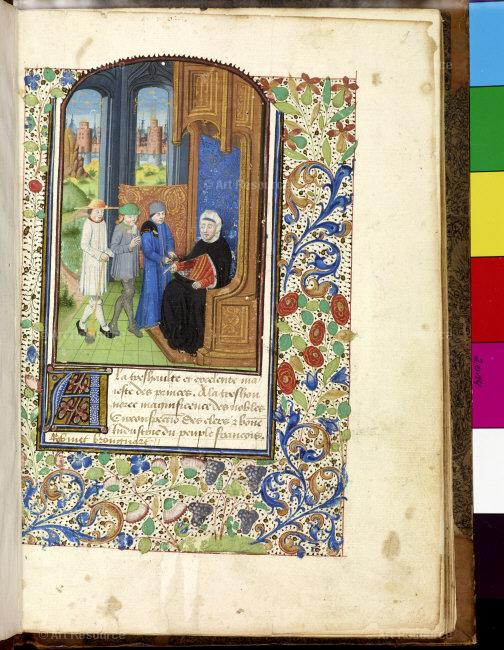 A la treshaulte et excelente ma
ieste des princes. A la treshon
neree magnificence des nobles
Circonspection des clers & bonne
Industrie du peuple francois.
© Art Resource
© Art Resource
© Art Resource